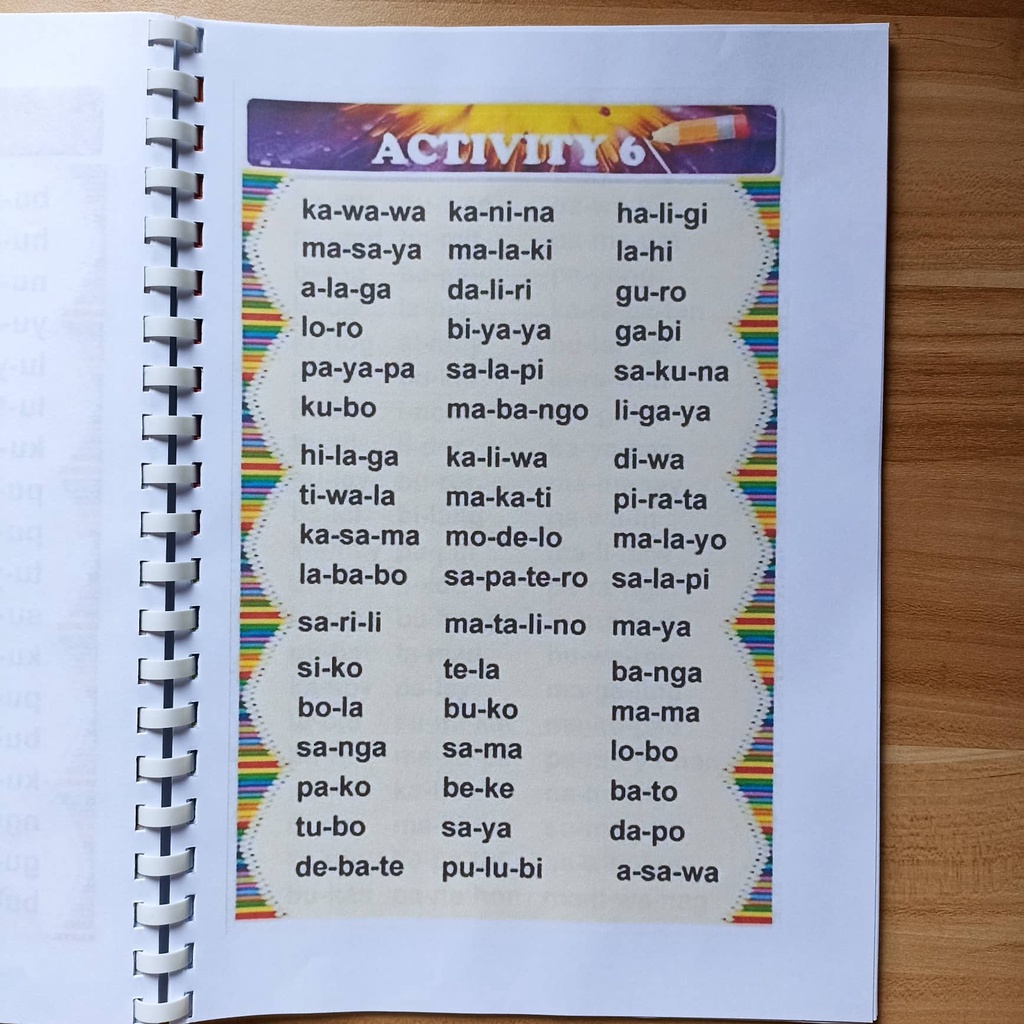 ACTIVITY 6
ka-wa-wa ka-ni-na ha-li-gi
ma-sa-ya ma-la-ki la-hi
a-la-ga da-li-ri gu-ro
lo-ro bi-ya-ya ga-bi
pa-ya-pa sa-la-pi sa-ku-na
ku-bo ma-ba-ngo li-ga-ya
hi-la-ga ka-li-wa di-wa
ti-wa-la ma-ka-ti pi-ra-ta
ka-sa-ma mo-de-lo ma-la-yo
la-ba-bo sa-pa-te-ro sa-la-pi
sa-ri-li ma-ta-li-no ma-ya
si-ko te-la ba-nga
bo-la bu-ko ma-ma
sa-nga sa-ma lo-bo
pa-ko be-ke ba-to
tu-bo sa-ya da-po
de-ba-te pu-lu-bi a-sa-wa